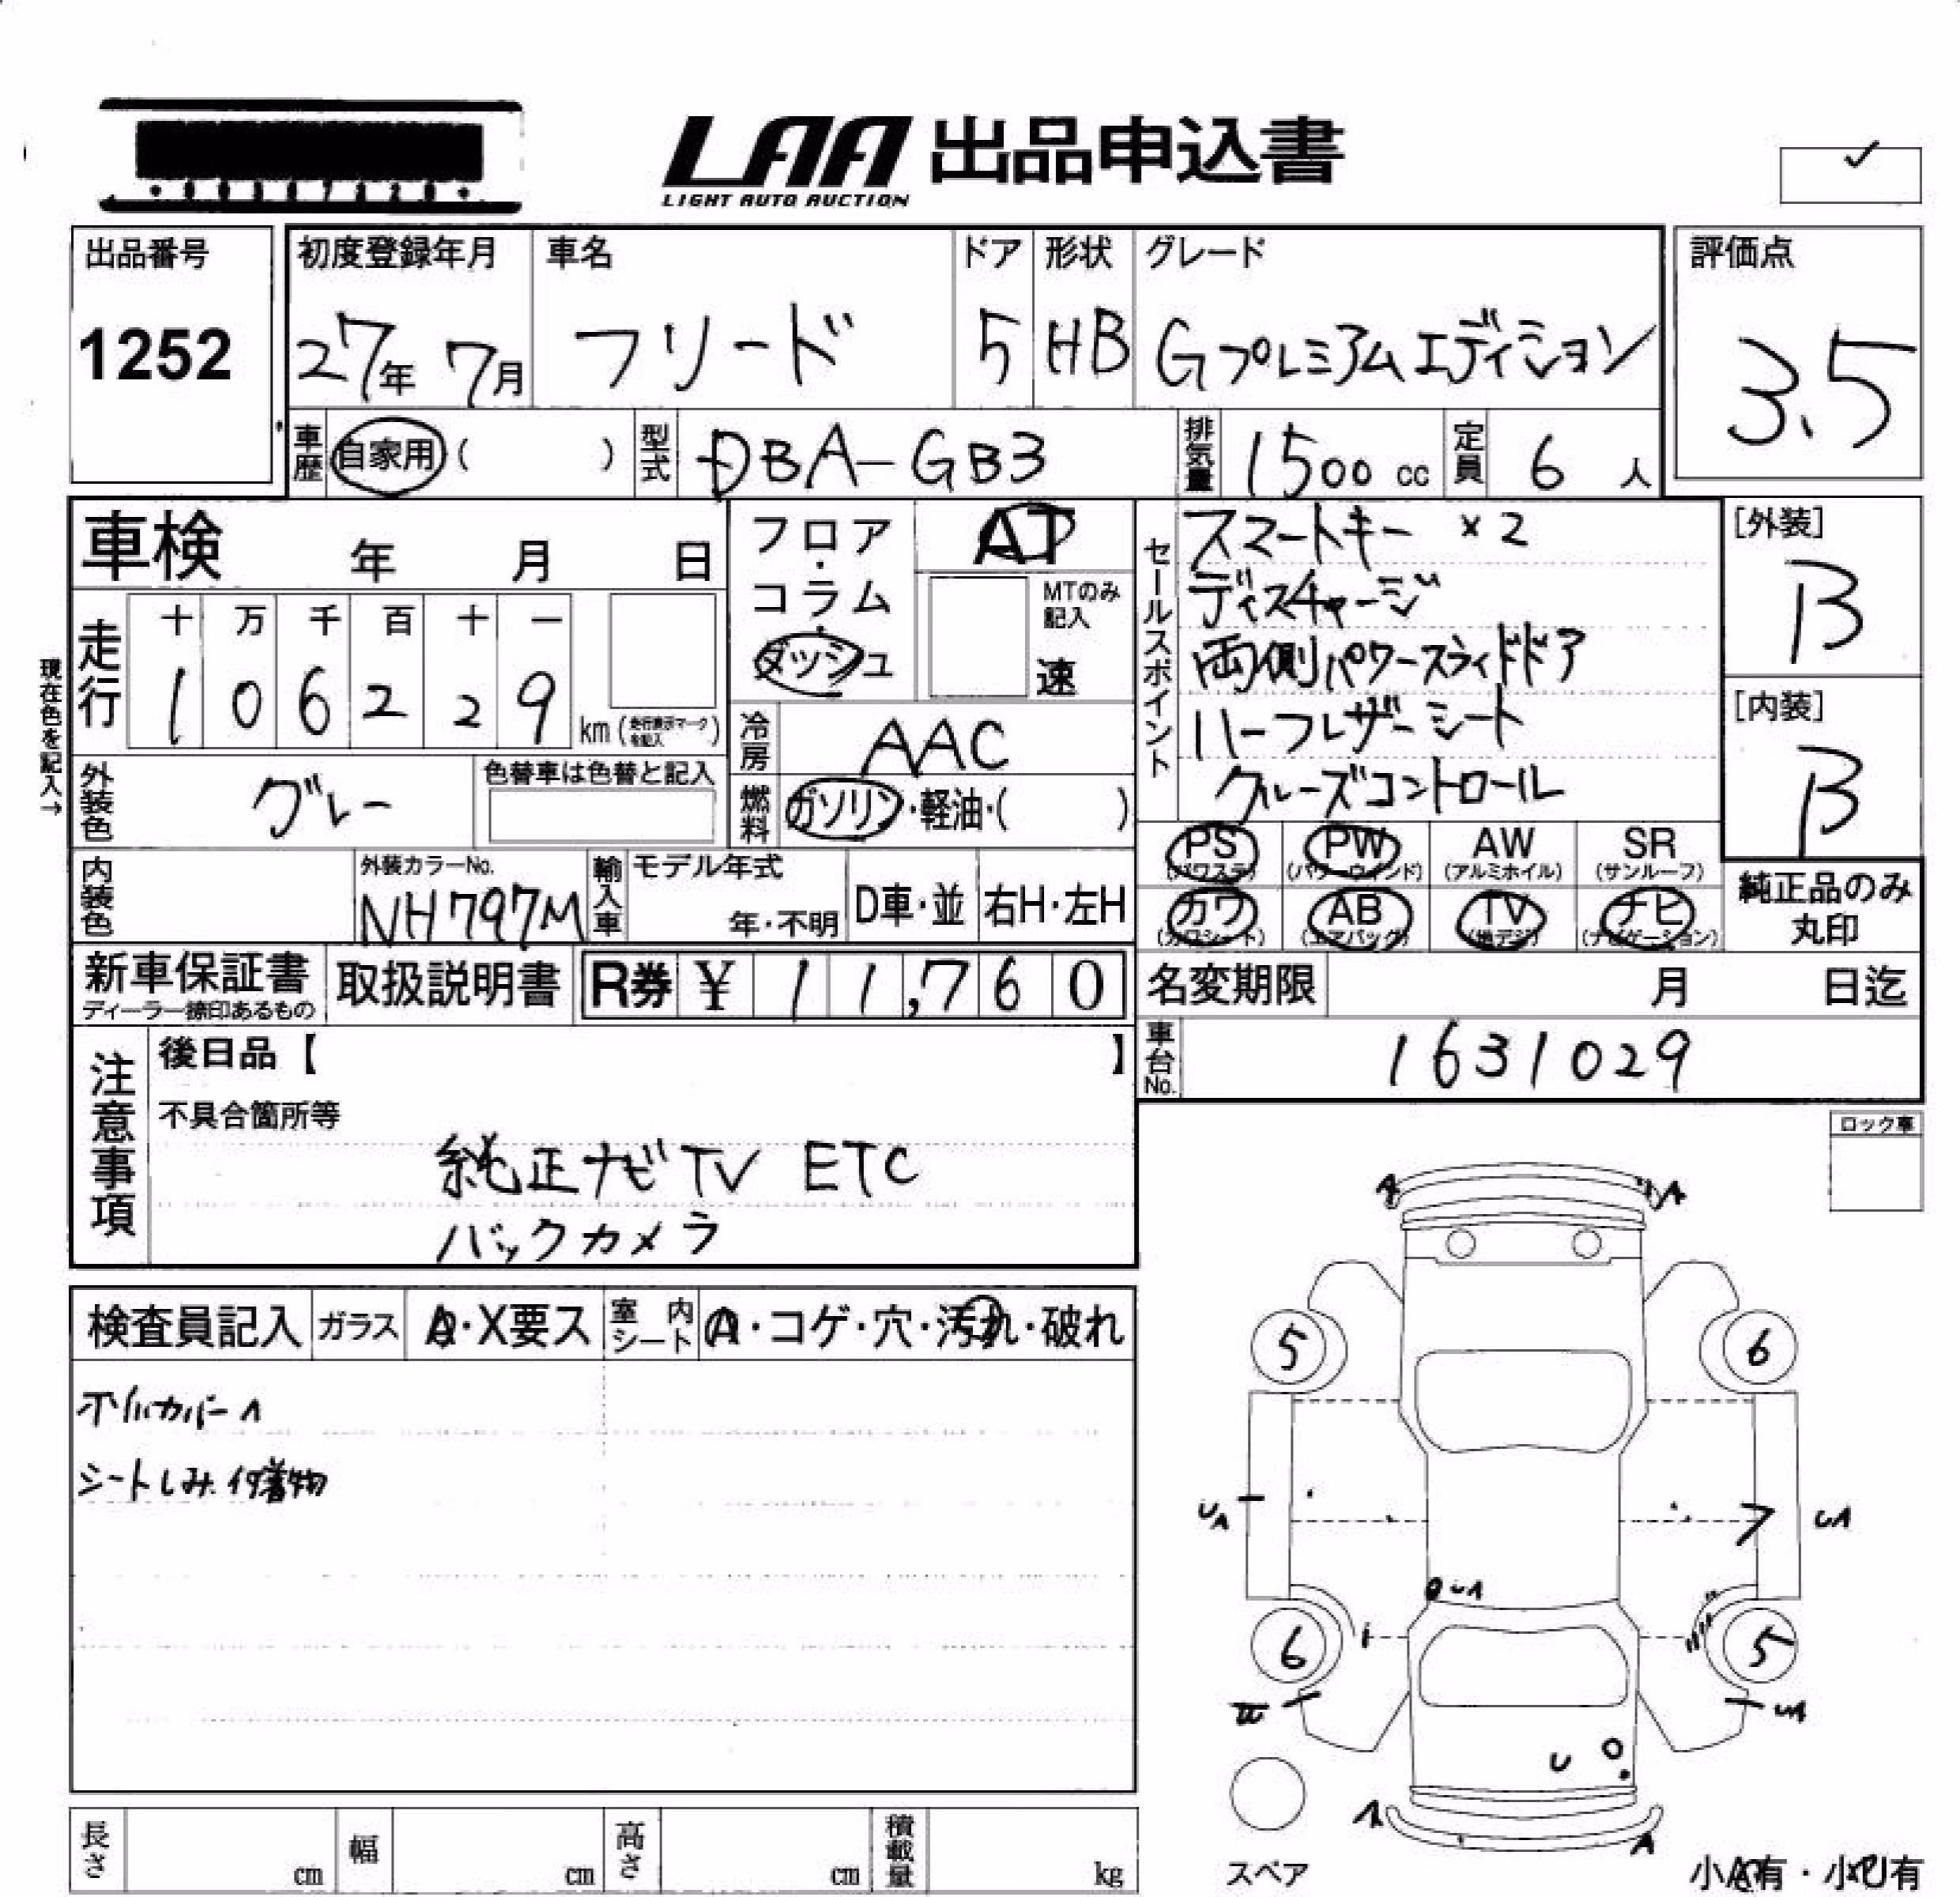 LAA 出品申込書
LIGHT AUTO AUCTION
出品番号
1252
初度登録年月
27年 7月
車名
フリード
ドア
5
形状
HB
グレード
Gプレミアムエディション
評価点
3.5
車歴 自家用 ( )
型式 DBA-GB3
排気量 1500 cc
定員 6 人
車検 年 月 日
フロア・コラム・ダッシュ
AT
MTのみ記入
速
セールスポイント
スマートキー ×2
ディスチャージ
両側パワースライドドア
ハーフレザーシート
クルーズコントロール
[外装]
B
[内装]
B
現在色を記入→
走行
十 万 千 百 十 一
1 0 6 2 2 9 km (走行表示マークを記入)
冷房 AAC
外装色 グレー
色替車は色替と記入
燃料 ガソリン・軽油・( )
PS (パワステ)
PW (パワーウィンド)
AW (アルミホイル)
SR (サンルーフ)
カワ (カワシート)
AB (エアバッグ)
TV (地デジ)
ナビ (ナビゲーション)
純正品のみ丸印
内装色
外装カラーNo.
NH797M
輸入車
モデル年式
年・不明
D車・並
右H・左H
新車保証書
ディーラー捺印あるもの
取扱説明書
R券 ¥ 11,760
名変期限 月 日迄
車台No. 1631029
注意事項
後日品【 】
不具合箇所等
純正ナビTV ETC
バックカメラ
ロック車
検査員記入
ガラス
A・X要ス
室内シート
A・コゲ・穴・汚れ・破れ
ホイルカバーA
シートしみ、付着物
A A
5 6
UA UA
UA
6 5
UA
U
A A
スペア
長さ cm
幅 cm
高さ cm
積載量 kg
小A有・小U有